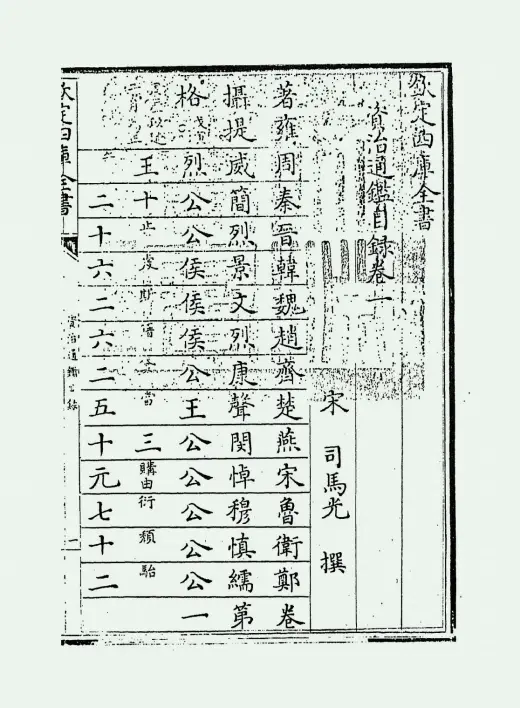 欽定四庫全書
資治通鑑目錄卷一
宋 司馬光 撰
著雍 周 秦 晉 韓 魏 趙 齊 楚 燕 宋 魯 衛 鄭 卷
攝提 威 簡 烈 景 文 烈 康 聲 閔 悼 穆 慎 繻 第
格 烈 公 公 侯 侯 侯 公 王 公 公 公 公 公 一
王 十 止 虔 斯 籍 當 三 購由 衍 頹 駘
二 十 六 二 六 二 五 十 元 七 十 二
欽定四庫全書
資治通鑑目錄
一